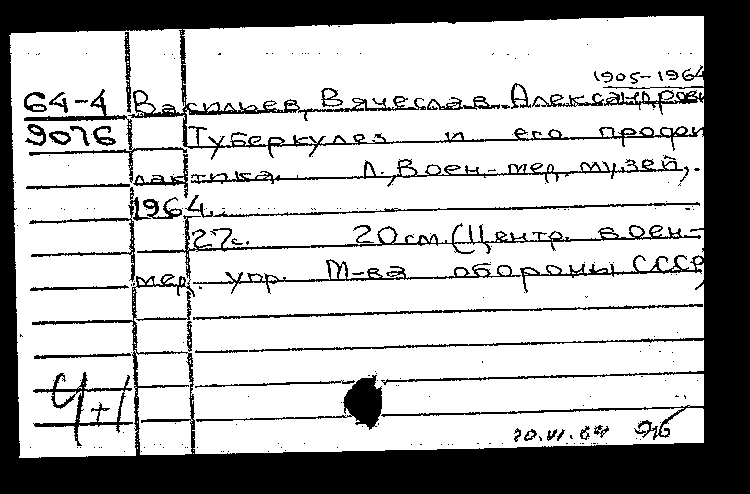 1905-1964
64-4 Васильев, Вячеслав Александрови
9076 Туберкулез и его профи
лактика. Л., Воен.-мед. музей,
1964.
27с. 20 см. (Центр. воен.-
мед. упр. М-ва обороны СССР)
4+1
20.VI.64